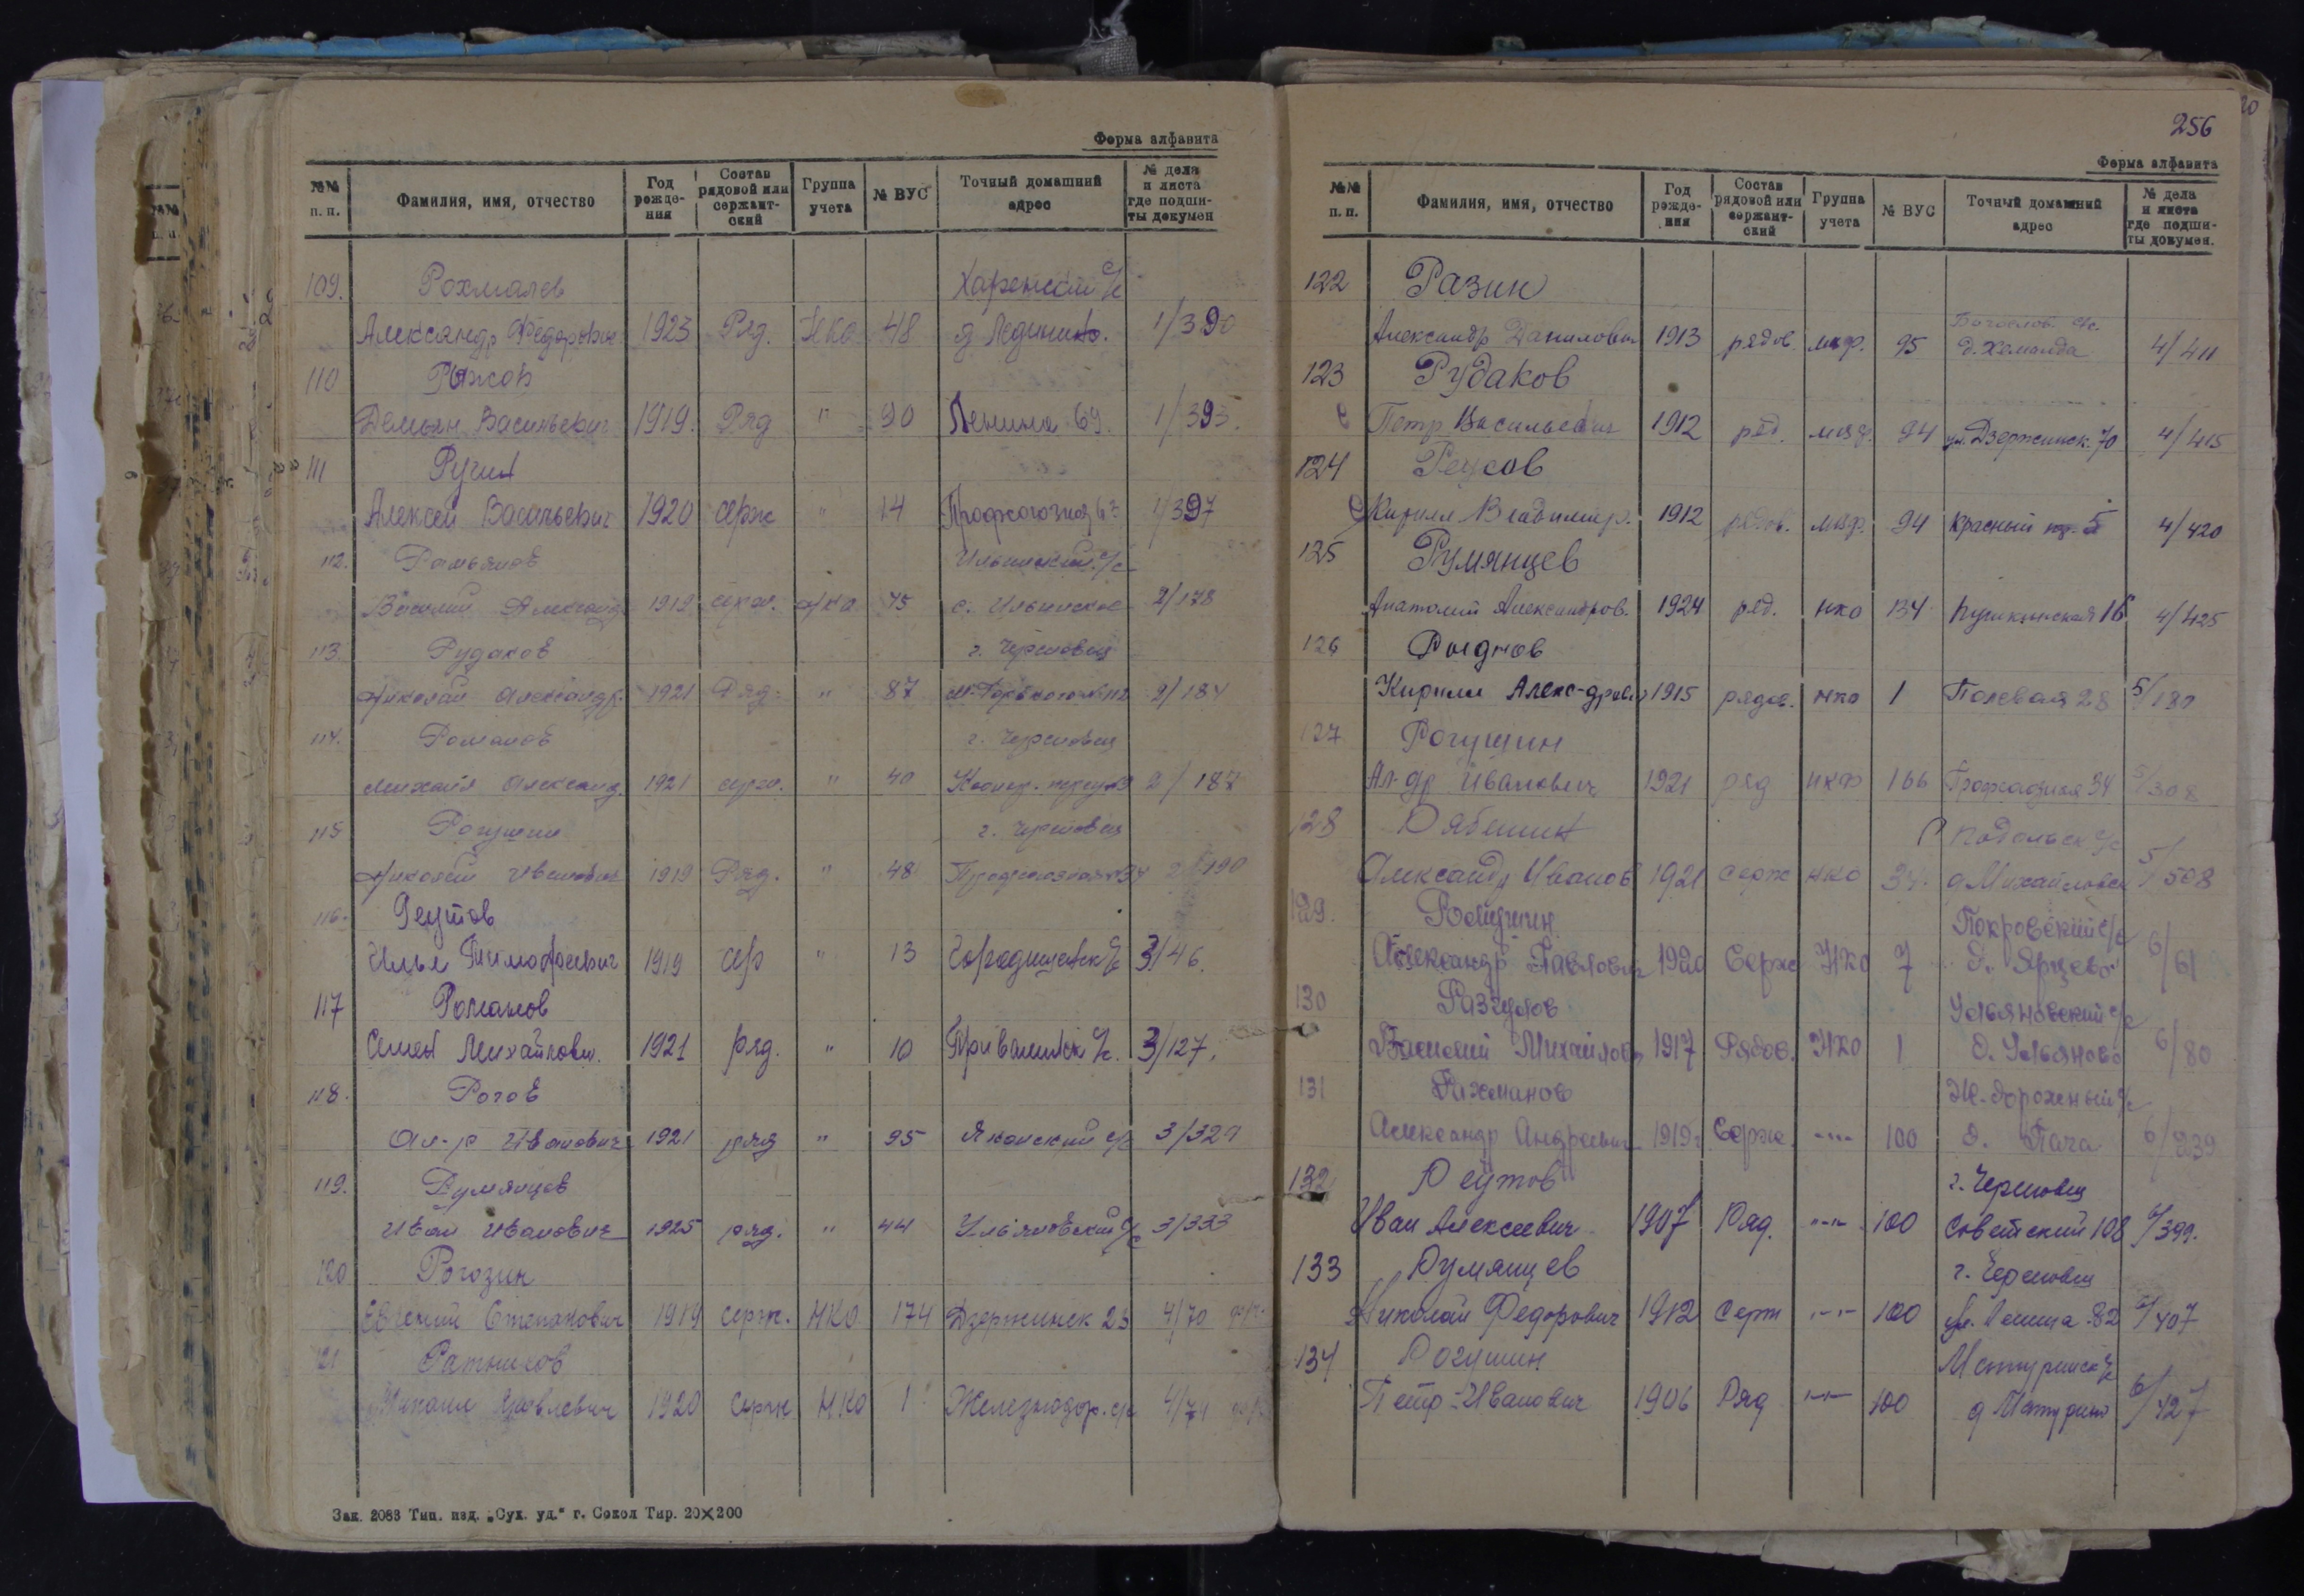 Форма алфавита
№№ п. п. Фамилия, имя, отчество Год рождения Состав рядовой или сержантский Группа учета № ВУС Точный домашний адрес № дела и листа где подшиты докумен
109. Рохмалев Харенский с/с
Александр Федорович 1923 Ряд. НКО 48 д. Лединино. 1/390
110 Рыжов
Демьян Васильевич 1919. Ряд " 90 Ленина 69. 1/393.
111
Алексей Васильевич 1920 серж " 14 Профсоюзная 1/397
112. с/с
Василий Александ. 1919 серж. НКО 75 с. Ильинское 2/178
113 Рудаков г. Череповец
Николай Александр. 1921 Ряд. " 87 М. Горького 2/184
114. Романов г. Череповец
Михаил Александ. 1921 серж. " 40 2/187
115 Рогушин г. Череповец
Николай Иванович 1919 Ряд. " 48 Профсоюзная 34 2/190
116. Реутов
Илья Тимофеевич 1919 сер " 13 Городищенск с/с 3/46.
117 Романов
Семен Михайлович. 1921 ряд. " 10 с/с. 3/127.
118. Рогов
Ал-р Иванович 1921 ряд " 95 Яконский с/с 3/329
119. Румянцев
Иван Иванович 1925 ряд. " 44 Ульяновский с/с 3/333
120 Рогозин
Евгений Степанович 1919 серж. НКО 174 Дзержинск 23 4/70
121 Ратников
Михаил Яковлевич 1920 Серж НКО 1 Железнодор. с/с 4/74
Зак. 2083 Тип. изд. „Сух. уд." г. Сокол Тир. 20×200
256
Форма алфавита
№№ п. п. Фамилия, имя, отчество Год рождения Состав рядовой или сержантский Группа учета № ВУС Точный домашний адрес № дела и листа где подшиты докумен.
122 Разин
Богослов. с/с.
Александр Данилович 1913 рядов. 95 д. 4/411
123 Рудаков
Петр Васильевич 1912 ряд. 94 ул. Дзержинск. 70 4/415
124
Кирилл Владимир. 1912 рядов. 94 Красный 5 4/420
125 Румянцев
Анатолий Александров. 1924 ряд. НКО 134 Пушкинская 16 4/425
126
Кирилл Алекс-дрович 1915 рядов. НКО 1 Полевая 28 5/180
127 Рогушин
Ал-др Иванович 1921 ряд 166 34 5/308
128 Рябинин Подольск с/с
Александр Иванов 1921 серж НКО 34. д. Михайловск 5/508
129. Покровский с/с
Александр Павлович 1920 Серж НКО 7 д. Ярцево 6/61
130 Разгулов Ульяновский с/с
Василий Михайлович 1917 Рядов. НКО 1 д. Ульяново 6/80
131 Рахманов Ж-дорожный с/с
Александр Андреевич 1919 Серж. -"- 100 д. Пача 6/239
132 Реутов г. Череповец
Иван Алексеевич 1907 Ряд. -"- 100 Советский 108 6/399.
133 Румянцев г. Череповец
Николай Федорович 1912 Серж -"- 100 ул. Ленина 82 6/407
134 Рогушин Матуринск с/с
Петр Иванович 1906 Ряд -"- 100 д Матурино 6/427